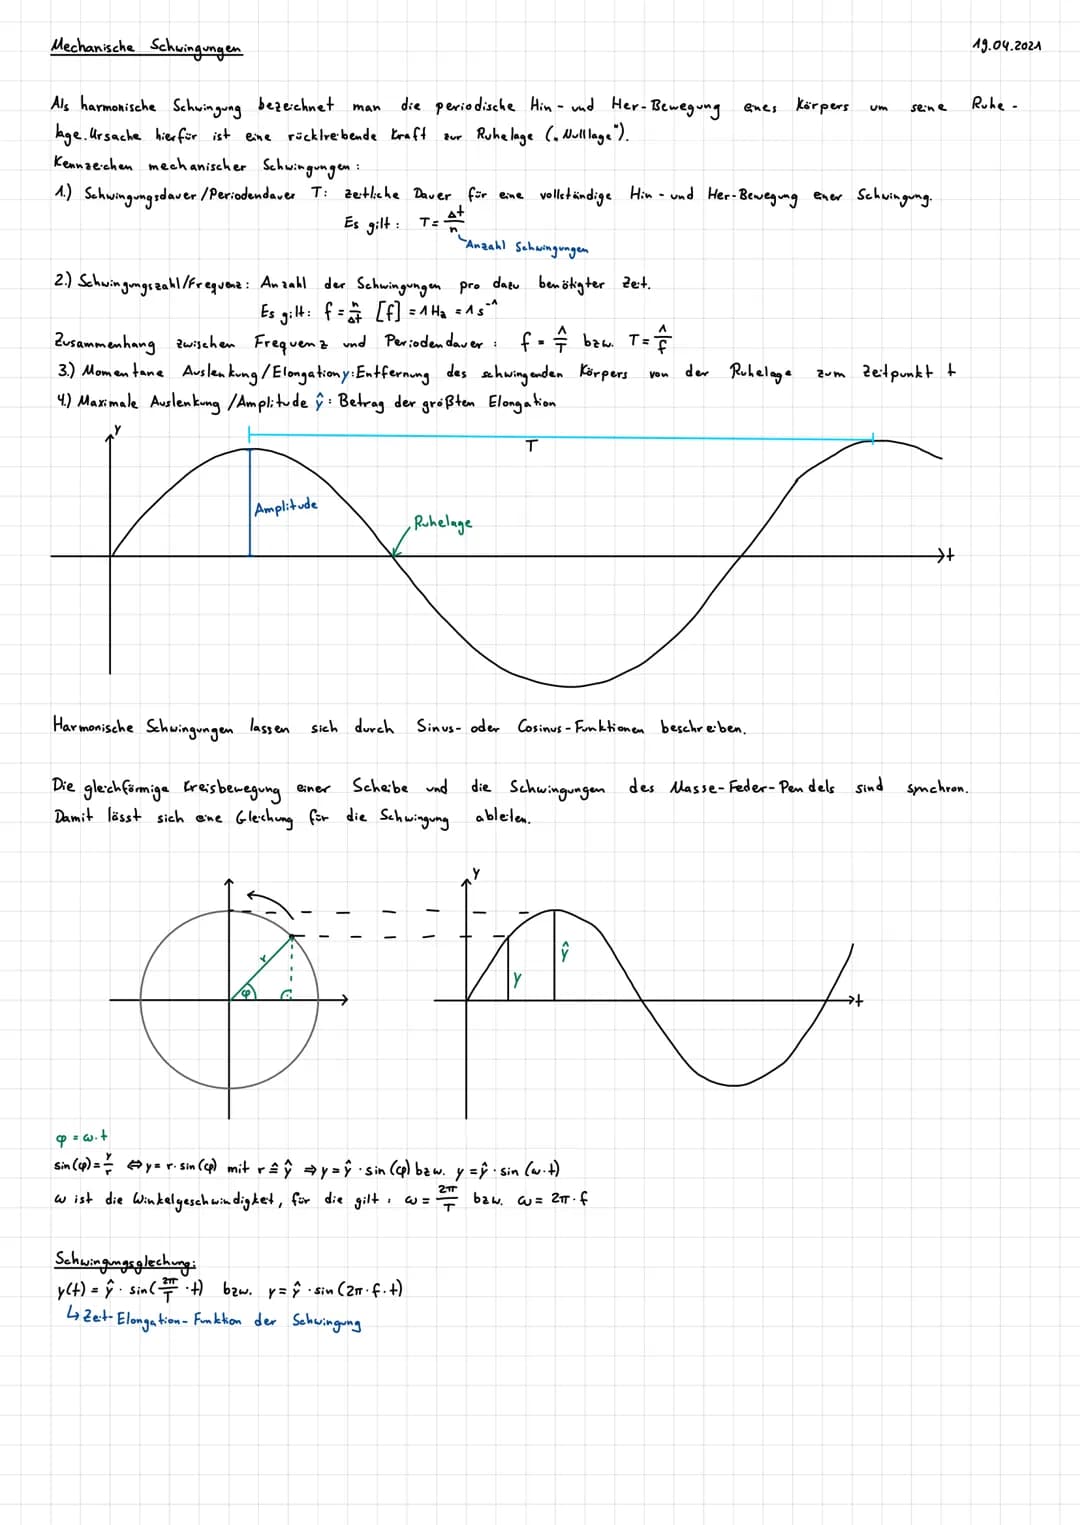 Mechanische Schwingungen 19.04.2021
Als harmonische Schwingung bezeichnet man die periodische Hin- und Her-Bewegung eines Körpers um seine Ruhe-
lage. Ursache hierfür ist eine rücktreibende Kraft zur Ruhelage („Nulllage").
Kennzeichen mechanischer Schwingungen:
1.) Schwingungsdauer/Periodendauer T: zeitliche Dauer für eine vollständige Hin- und Her-Bewegung einer Schwingung.
Es gilt: T = Δt/n
Anzahl Schwingungen
2.) Schwingungszahl/Frequenz: Anzahl der Schwingungen pro dazu benötigter Zeit.
Es gilt: f = n/Δt [f] = 1 Hz = 1 s⁻¹
Zusammenhang zwischen Frequenz und Periodendauer: f = 1/T bzw. T = 1/f
3.) Momentane Auslenkung/Elongation y: Entfernung des schwingenden Körpers von der Ruhelage zum Zeitpunkt t
4.) Maximale Auslenkung/Amplitude ŷ: Betrag der größten Elongation
y
T
Amplitude
Ruhelage
t
Harmonische Schwingungen lassen sich durch Sinus- oder Cosinus-Funktionen beschreiben.
Die gleichförmige Kreisbewegung einer Scheibe und die Schwingungen des Masse-Feder-Pendels sind synchron.
Damit lässt sich eine Gleichung für die Schwingung ableiten.
y
r
φ
y
ŷ
t
φ = ω·t
sin(φ) = y/r ⇔ y = r·sin(φ) mit r ≙ ŷ ⇒ y = ŷ · sin(φ) bzw. y = ŷ · sin(ω·t)
ω ist die Winkelgeschwindigket, für die gilt: ω = 2π/T bzw. ω = 2π·f
Schwingungsgleichung:
y(t) = ŷ · sin(2π/T · t) bzw. y = ŷ · sin(2π·f·t)
↳ Zeit-Elongation-Funktion der Schwingung